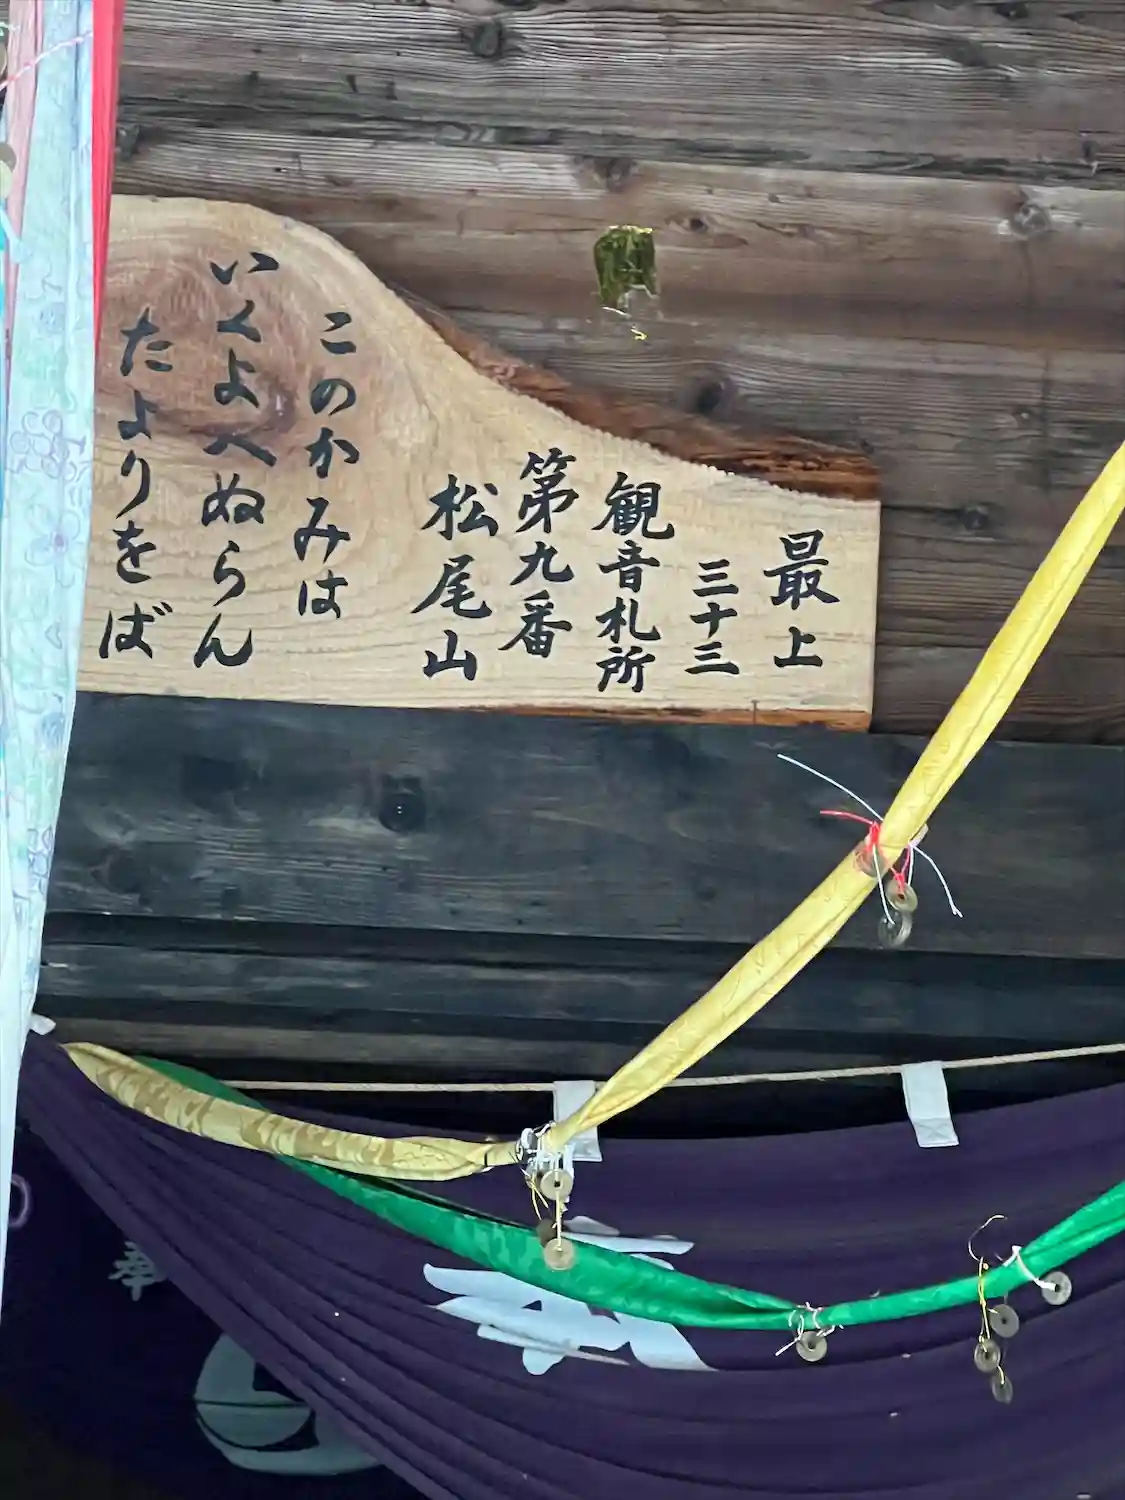 最上
三十三
観音札所
第九番
松尾山
このかみは
いくよへぬらん
たよりをば
奉